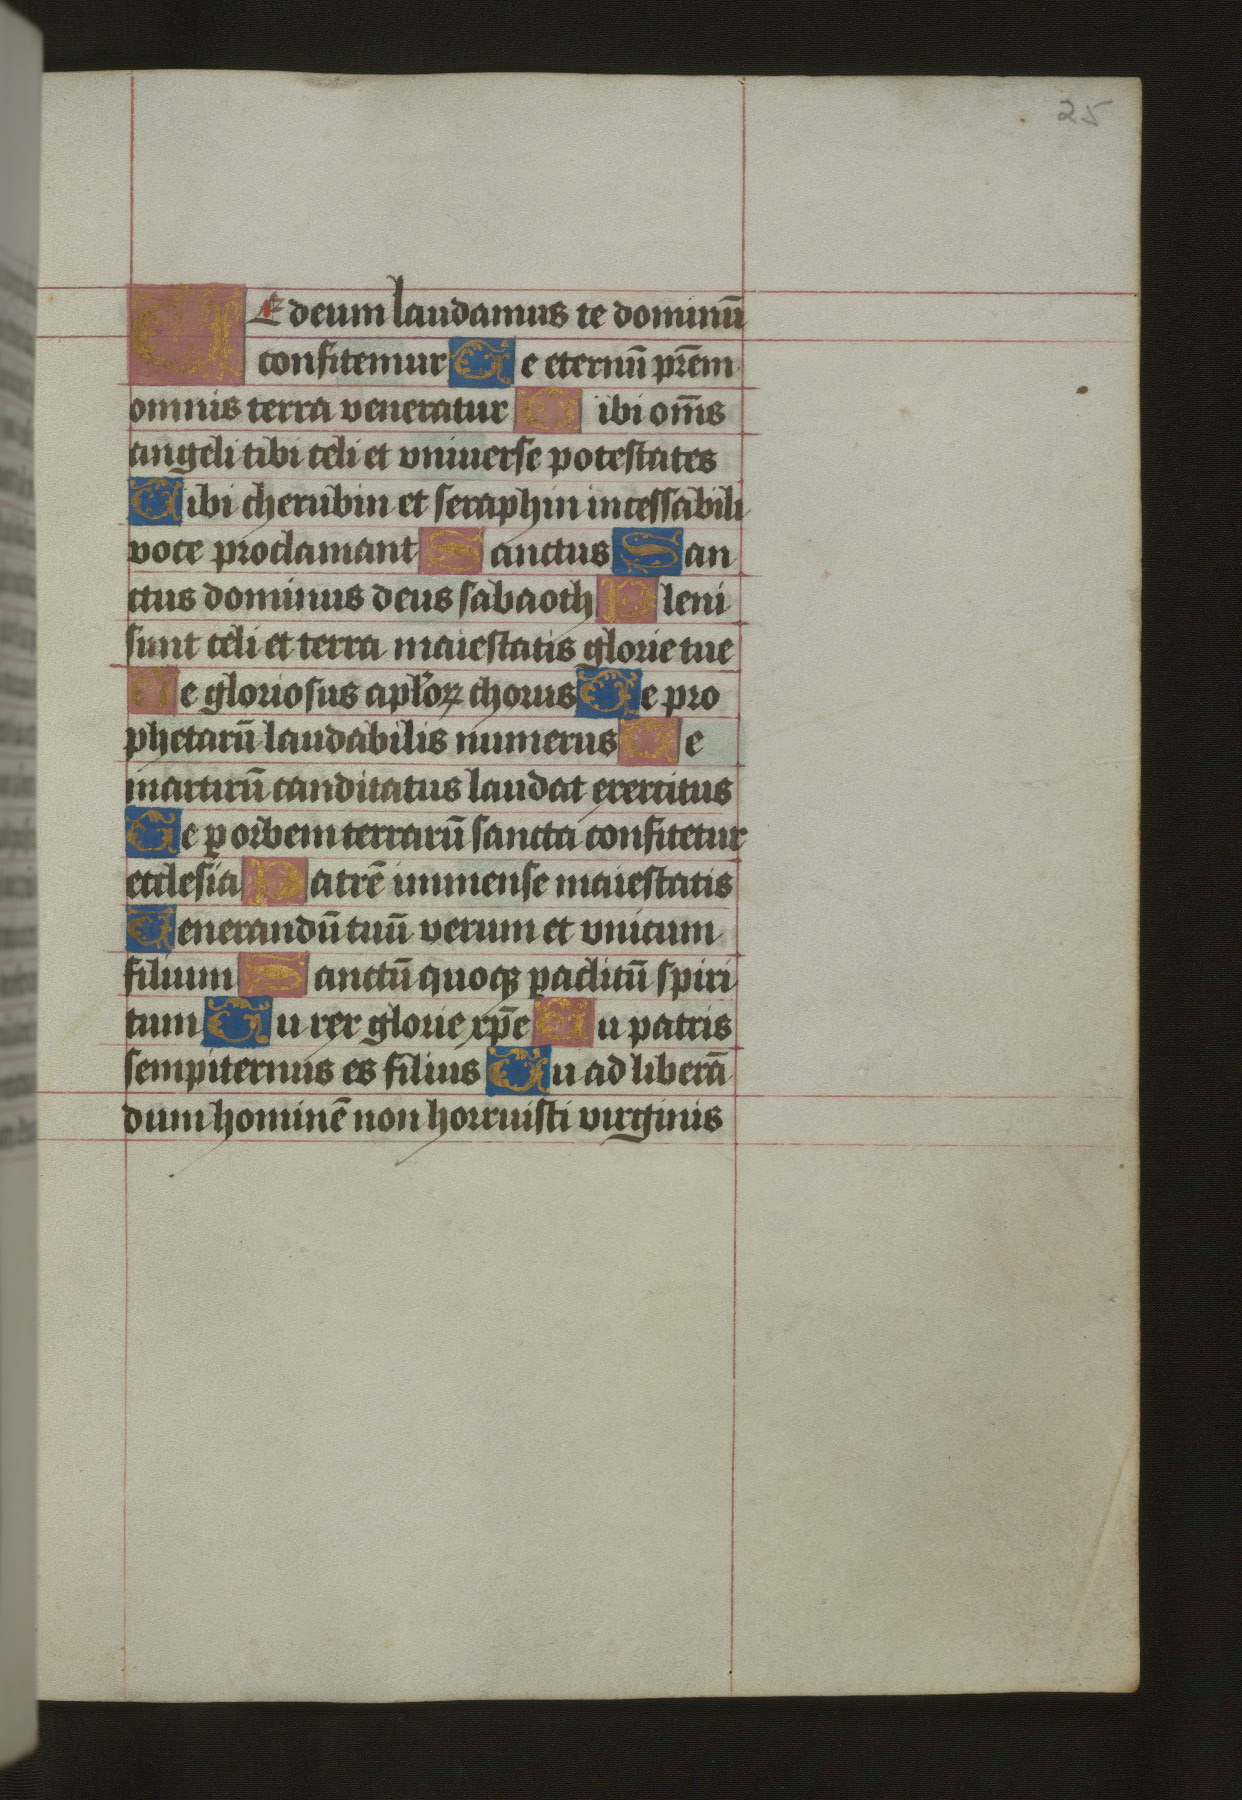 25
TE deum laudamus te dominū
confitemur Te eternū prēm
omnis terra veneratur Tibi om̄s
angeli tibi celi et vniuerse potestates
Tibi cherubin et seraphin incessabili
voce proclamant Sanctus San
ctus dominus deus sabaoth Pleni
sunt celi et terra maiestatis glorie tue
Te gloriosus aplōꝝ chorus Te pro
phetarū laudabilis numerus Te
martirū canditatus laudat exercitus
Te ꝑ orbem terrarū sancta confitetur
ecclesia Patrē inmense maiestatis
Venerandū tuū verum et vnicum
filium Sanctū quoqꝫ paclitū spiri
tum Tu rex glorie xp̄e Tu patris
sempiternus es filius Tu ad liberā
dum hominē non horruisti virginis